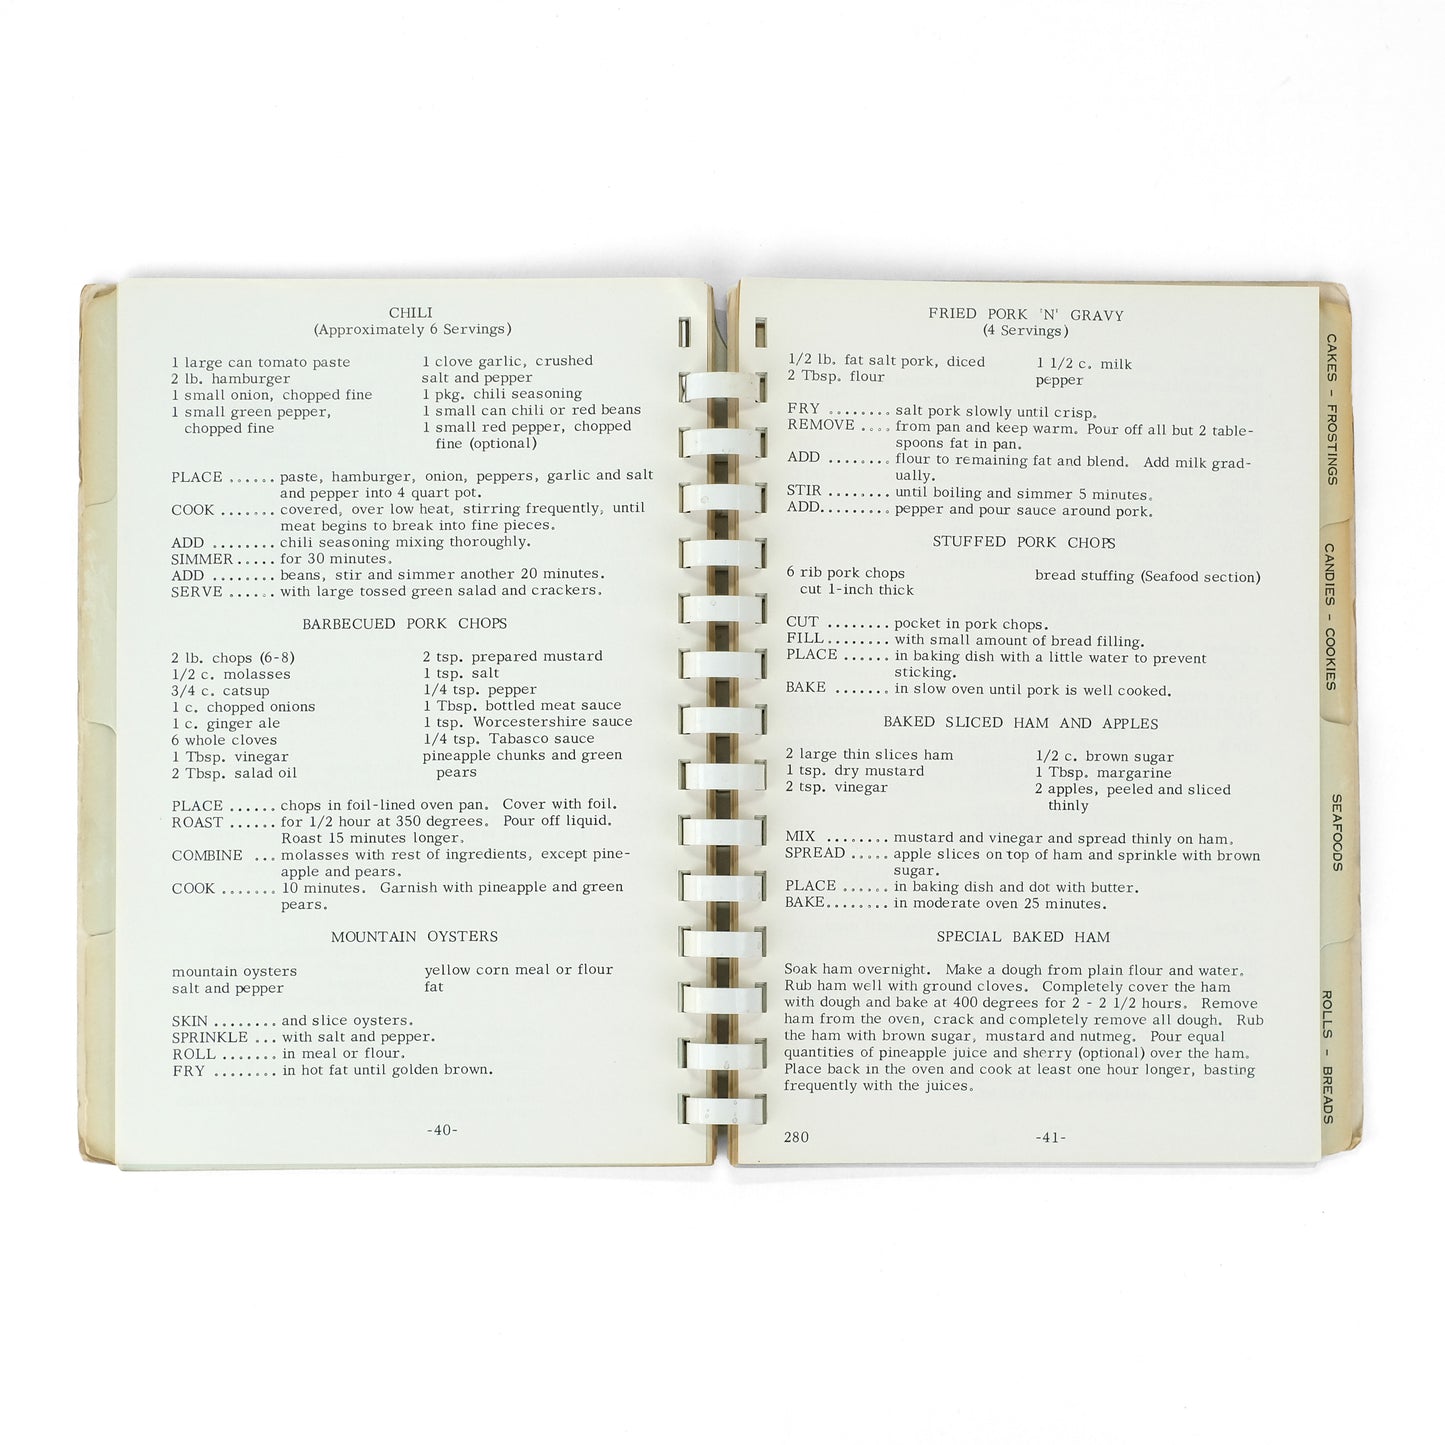 CHILI
(Approximately 6 Servings)
1 large can tomato paste
2 lb. hamburger
1 small onion, chopped fine
1 small green pepper,
chopped fine
1 clove garlic, crushed
salt and pepper
1 pkg. chili seasoning
1 small can chili or red beans
1 small red pepper, chopped
fine (optional)
PLACE ...... paste, hamburger, onion, peppers, garlic and salt
and pepper into 4 quart pot.
COOK ....... covered, over low heat, stirring frequently, until
meat begins to break into fine pieces.
ADD ........ chili seasoning mixing thoroughly.
SIMMER..... for 30 minutes.
ADD ........ beans, stir and simmer another 20 minutes.
SERVE ...... with large tossed green salad and crackers.
BARBECUED PORK CHOPS
2 lb. chops (6-8)
1/2 c. molasses
3/4 c. catsup
1 c. chopped onions
1 c. ginger ale
6 whole cloves
1 Tbsp. vinegar
2 Tbsp. salad oil
2 tsp. prepared mustard
1 tsp. salt
1/4 tsp. pepper
1 Tbsp. bottled meat sauce
1 tsp. Worcestershire sauce
1/4 tsp. Tabasco sauce
pineapple chunks and green
pears
PLACE ...... chops in foil-lined oven pan. Cover with foil.
ROAST ...... for 1/2 hour at 350 degrees. Pour off liquid.
Roast 15 minutes longer.
COMBINE ... molasses with rest of ingredients, except pine-
apple and pears.
COOK ....... 10 minutes. Garnish with pineapple and green
pears.
MOUNTAIN OYSTERS
mountain oysters
salt and pepper
yellow corn meal or flour
fat
SKIN ........ and slice oysters.
SPRINKLE ... with salt and pepper.
ROLL ....... in meal or flour.
FRY ........ in hot fat until golden brown.
-40-
FRIED PORK 'N' GRAVY
(4 Servings)
1/2 lb. fat salt pork, diced
2 Tbsp. flour
1 1/2 c. milk
pepper
FRY ........ salt pork slowly until crisp.
REMOVE .... from pan and keep warm. Pour off all but 2 table-
spoons fat in pan.
ADD ........ flour to remaining fat and blend. Add milk grad-
ually.
STIR ........ until boiling and simmer 5 minutes.
ADD......... pepper and pour sauce around pork.
STUFFED PORK CHOPS
6 rib pork chops
cut 1-inch thick
bread stuffing (Seafood section)
CUT ........ pocket in pork chops.
FILL........ with small amount of bread filling.
PLACE ...... in baking dish with a little water to prevent
sticking.
BAKE ....... in slow oven until pork is well cooked.
BAKED SLICED HAM AND APPLES
2 large thin slices ham
1 tsp. dry mustard
2 tsp. vinegar
1/2 c. brown sugar
1 Tbsp. margarine
2 apples, peeled and sliced
thinly
MIX ........ mustard and vinegar and spread thinly on ham.
SPREAD ..... apple slices on top of ham and sprinkle with brown
sugar.
PLACE ...... in baking dish and dot with butter.
BAKE........ in moderate oven 25 minutes.
SPECIAL BAKED HAM
Soak ham overnight. Make a dough from plain flour and water.
Rub ham well with ground cloves. Completely cover the ham
with dough and bake at 400 degrees for 2 - 2 1/2 hours. Remove
ham from the oven, crack and completely remove all dough. Rub
the ham with brown sugar, mustard and nutmeg. Pour equal
quantities of pineapple juice and sherry (optional) over the ham.
Place back in the oven and cook at least one hour longer, basting
frequently with the juices.
280
-41-
CAKES - FROSTINGS
CANDIES - COOKIES
SEAFOODS
ROLLS - BREADS